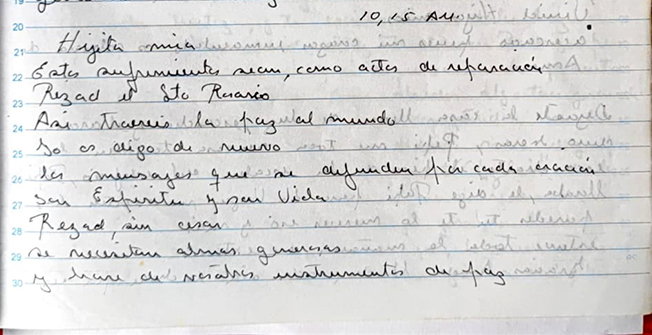 10,15 AM.
Hijita mia
Estos sufrimientos sean, como actos de reparación
Rezad el Sto Rosario
Asi traereis la paz al mundo
Yo os digo de nuevo
los mensajes que se difunden por cada oración
son Espiritu y son Vida
Rezad, sin cesar
se necesitan almas generosas
y hare de vosotros instrumentos de paz
20
21
22
23
24
25
26
27
28
29
30